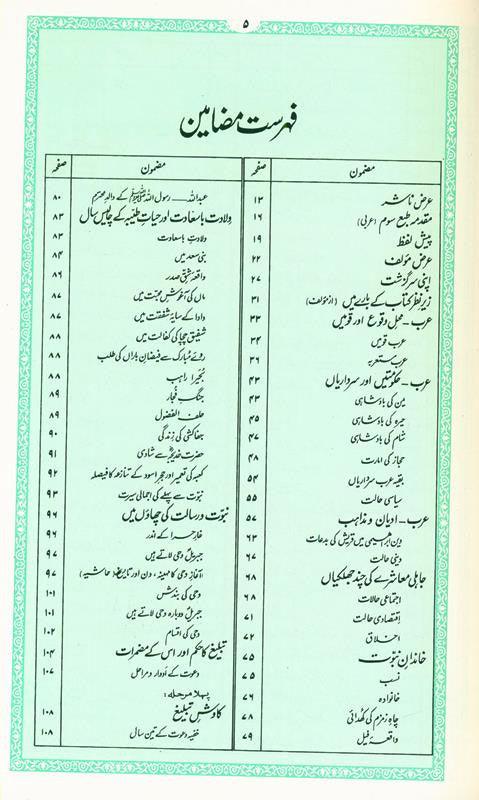 ۵
فہرست مضامین
مضمون صفحہ
عرض ناشر ۱۳
مقدمہ طبع سوم (عربی) ۱۶
پیش لفظ ۱۹
عرض مؤلف ۲۲
اپنی سرگذشت ۲۷
زیر نظر کتاب کے بارے میں (از مؤلف) ۳۱
عرب - محل وقوع اور قومیں ۳۳
عرب قومیں ۳۴
عرب مستعربہ ۳۶
عرب - حکومتیں اور سرداریاں ۴۳
یمن کی بادشاہی ۴۳
حیرہ کی بادشاہی ۴۵
شام کی بادشاہی ۴۷
حجاز کی امارت ۴۸
بقیہ عرب سرداریاں ۵۴
سیاسی حالت ۵۵
عرب - ادیان و مذاہب ۵۷
دین ابراہیمی میں قریش کی بدعات ۶۳
دینی حالت ۶۷
جاہلی معاشرے کی چند جھلکیاں ۶۸
اجتماعی حالات ۶۸
اقتصادی حالت ۷۱
اخلاق ۷۲
خاندان نبوت ۷۵
نسب ۷۵
خانوادہ ۷۶
چاہ زمزم کی کھدائی ۷۸
واقعہ فیل ۷۹
مضمون صفحہ
عبداللہ — رسول اللہ ﷺ کے والد محترم ۸۰
ولادت باسعادت اور حیات طیبہ کے چالیس سال ۸۳
ولادت باسعادت ۸۳
بنی سعد میں ۸۴
واقعہ شق صدر ۸۶
ماں کی آغوش محبت میں ۸۷
دادا کے سایہ شفقت میں ۸۷
شفیق چچا کی کفالت میں ۸۸
روئے مبارک سے فیضان باراں کی طلب ۸۸
بحیرا راہب ۸۸
جنگ فجار ۸۹
حلف الفضول ۸۹
جفاکشی کی زندگی ۹۰
حضرت خدیجہؓ سے شادی ۹۱
کعبہ کی تعمیر اور حجر اسود کے تنازعہ کا فیصلہ ۹۲
نبوت سے پہلے کی اجمالی سیرت ۹۳
نبوت و رسالت کی چھاؤں میں ۹۶
غار حرا کے اندر ۹۶
جبریلؑ وحی لاتے ہیں ۹۷
آغاز وحی کا مہینہ، دن اور تاریخ (حاشیہ) ۹۷
وحی کی بندش ۱۰۱
جبریلؑ دوبارہ وحی لاتے ہیں ۱۰۱
وحی کی اقسام ۱۰۲
تبلیغ کا حکم اور اس کے مضمرات ۱۰۴
دعوت کے ادوار و مراحل ۱۰۷
پہلا مرحلہ:
کاوش تبلیغ ۱۰۸
خفیہ دعوت کے تین سال ۱۰۸